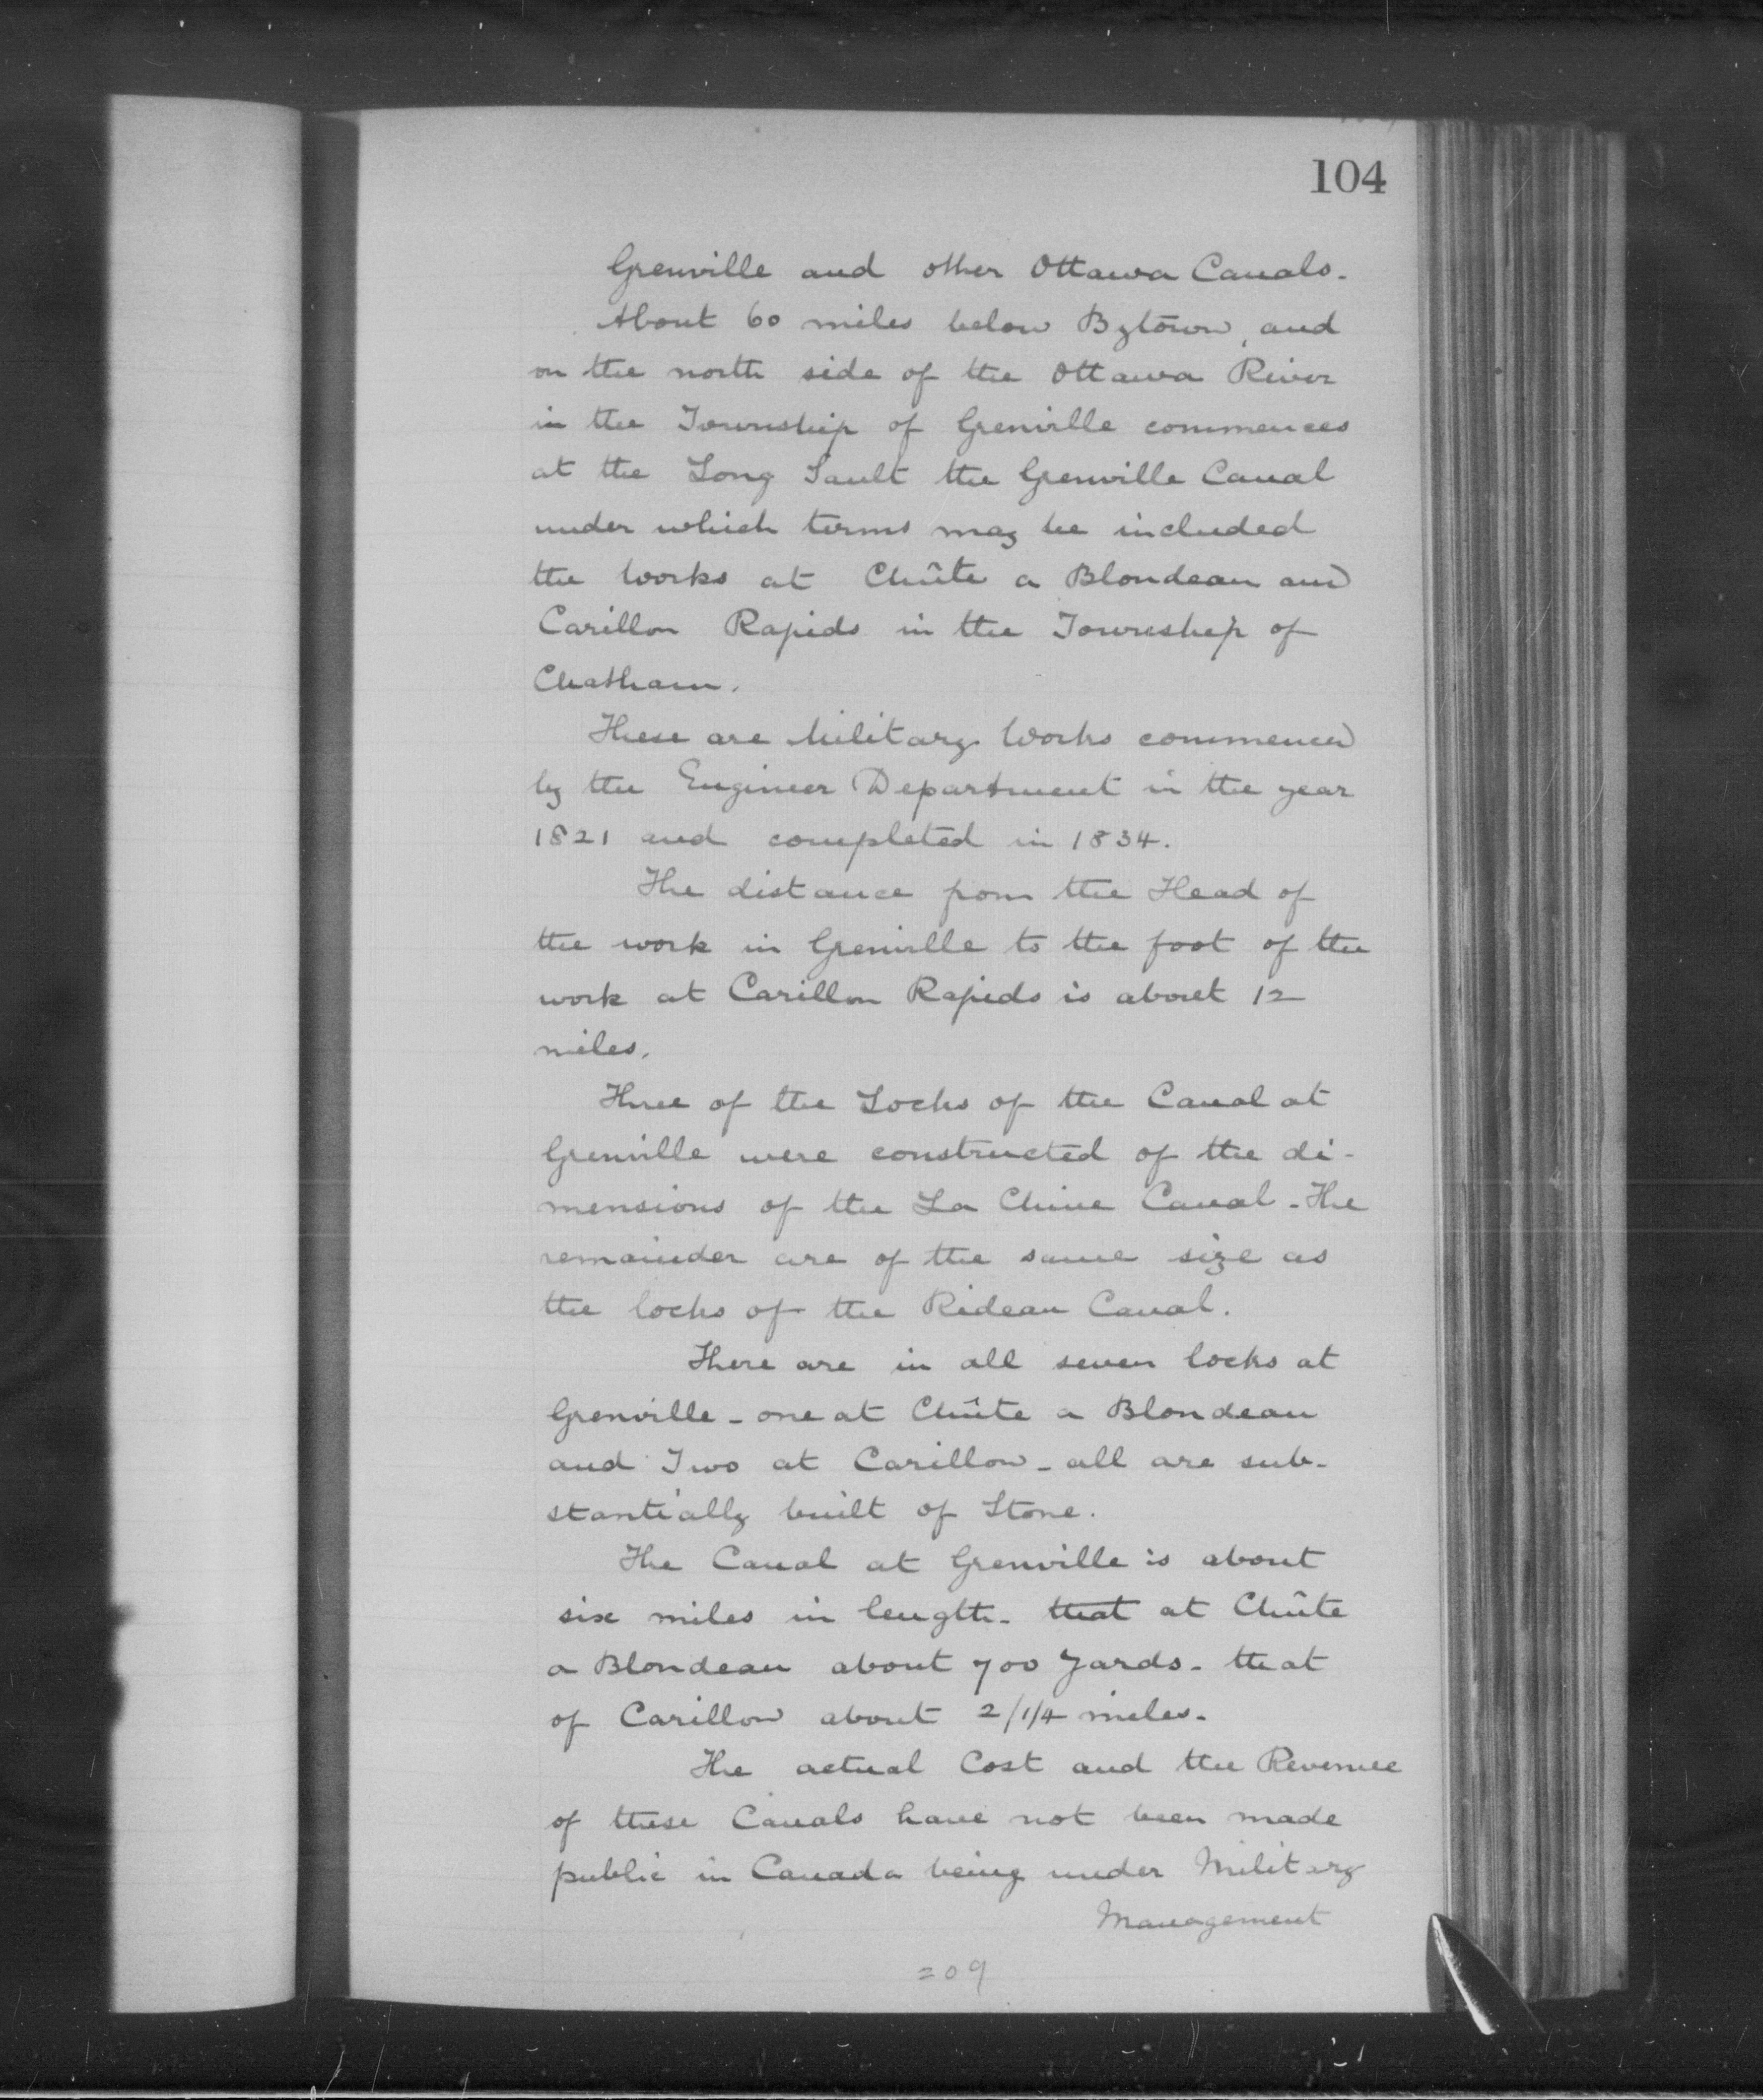 104
Grenville and other Ottawa Canals.
About 60 miles below Bytown, and
on the north side of the Ottawa River
in the Township of Grenville commences
at the Long Sault the Grenville Canal
under which terms may be included
the Works at Chûte a Blondeau and
Carillon Rapids in the Township of
Chatham.
These are Military Works commenced
by the Engineer Department in the year
1821 and completed in 1834.
The distance from the Head of
the work in Grenville to the foot of the
work at Carillon Rapids is about 12
miles.
Three of the Locks of the Canal at
Grenville were constructed of the di-
mensions of the La Chine Canal - The
remainder are of the same size as
the locks of the Rideau Canal.
There are in all seven locks at
Grenville - one at Chûte a Blondeau
and Two at Carillon - all are sub-
stantially built of Stone.
The Canal at Grenville is about
six miles in length - that at Chûte
a Blondeau about 700 Yards - that
of Carillon about 2/1/4 miles -
The actual Cost and the Revenue
of these Canals have not been made
public in Canada being under Military
Management
209